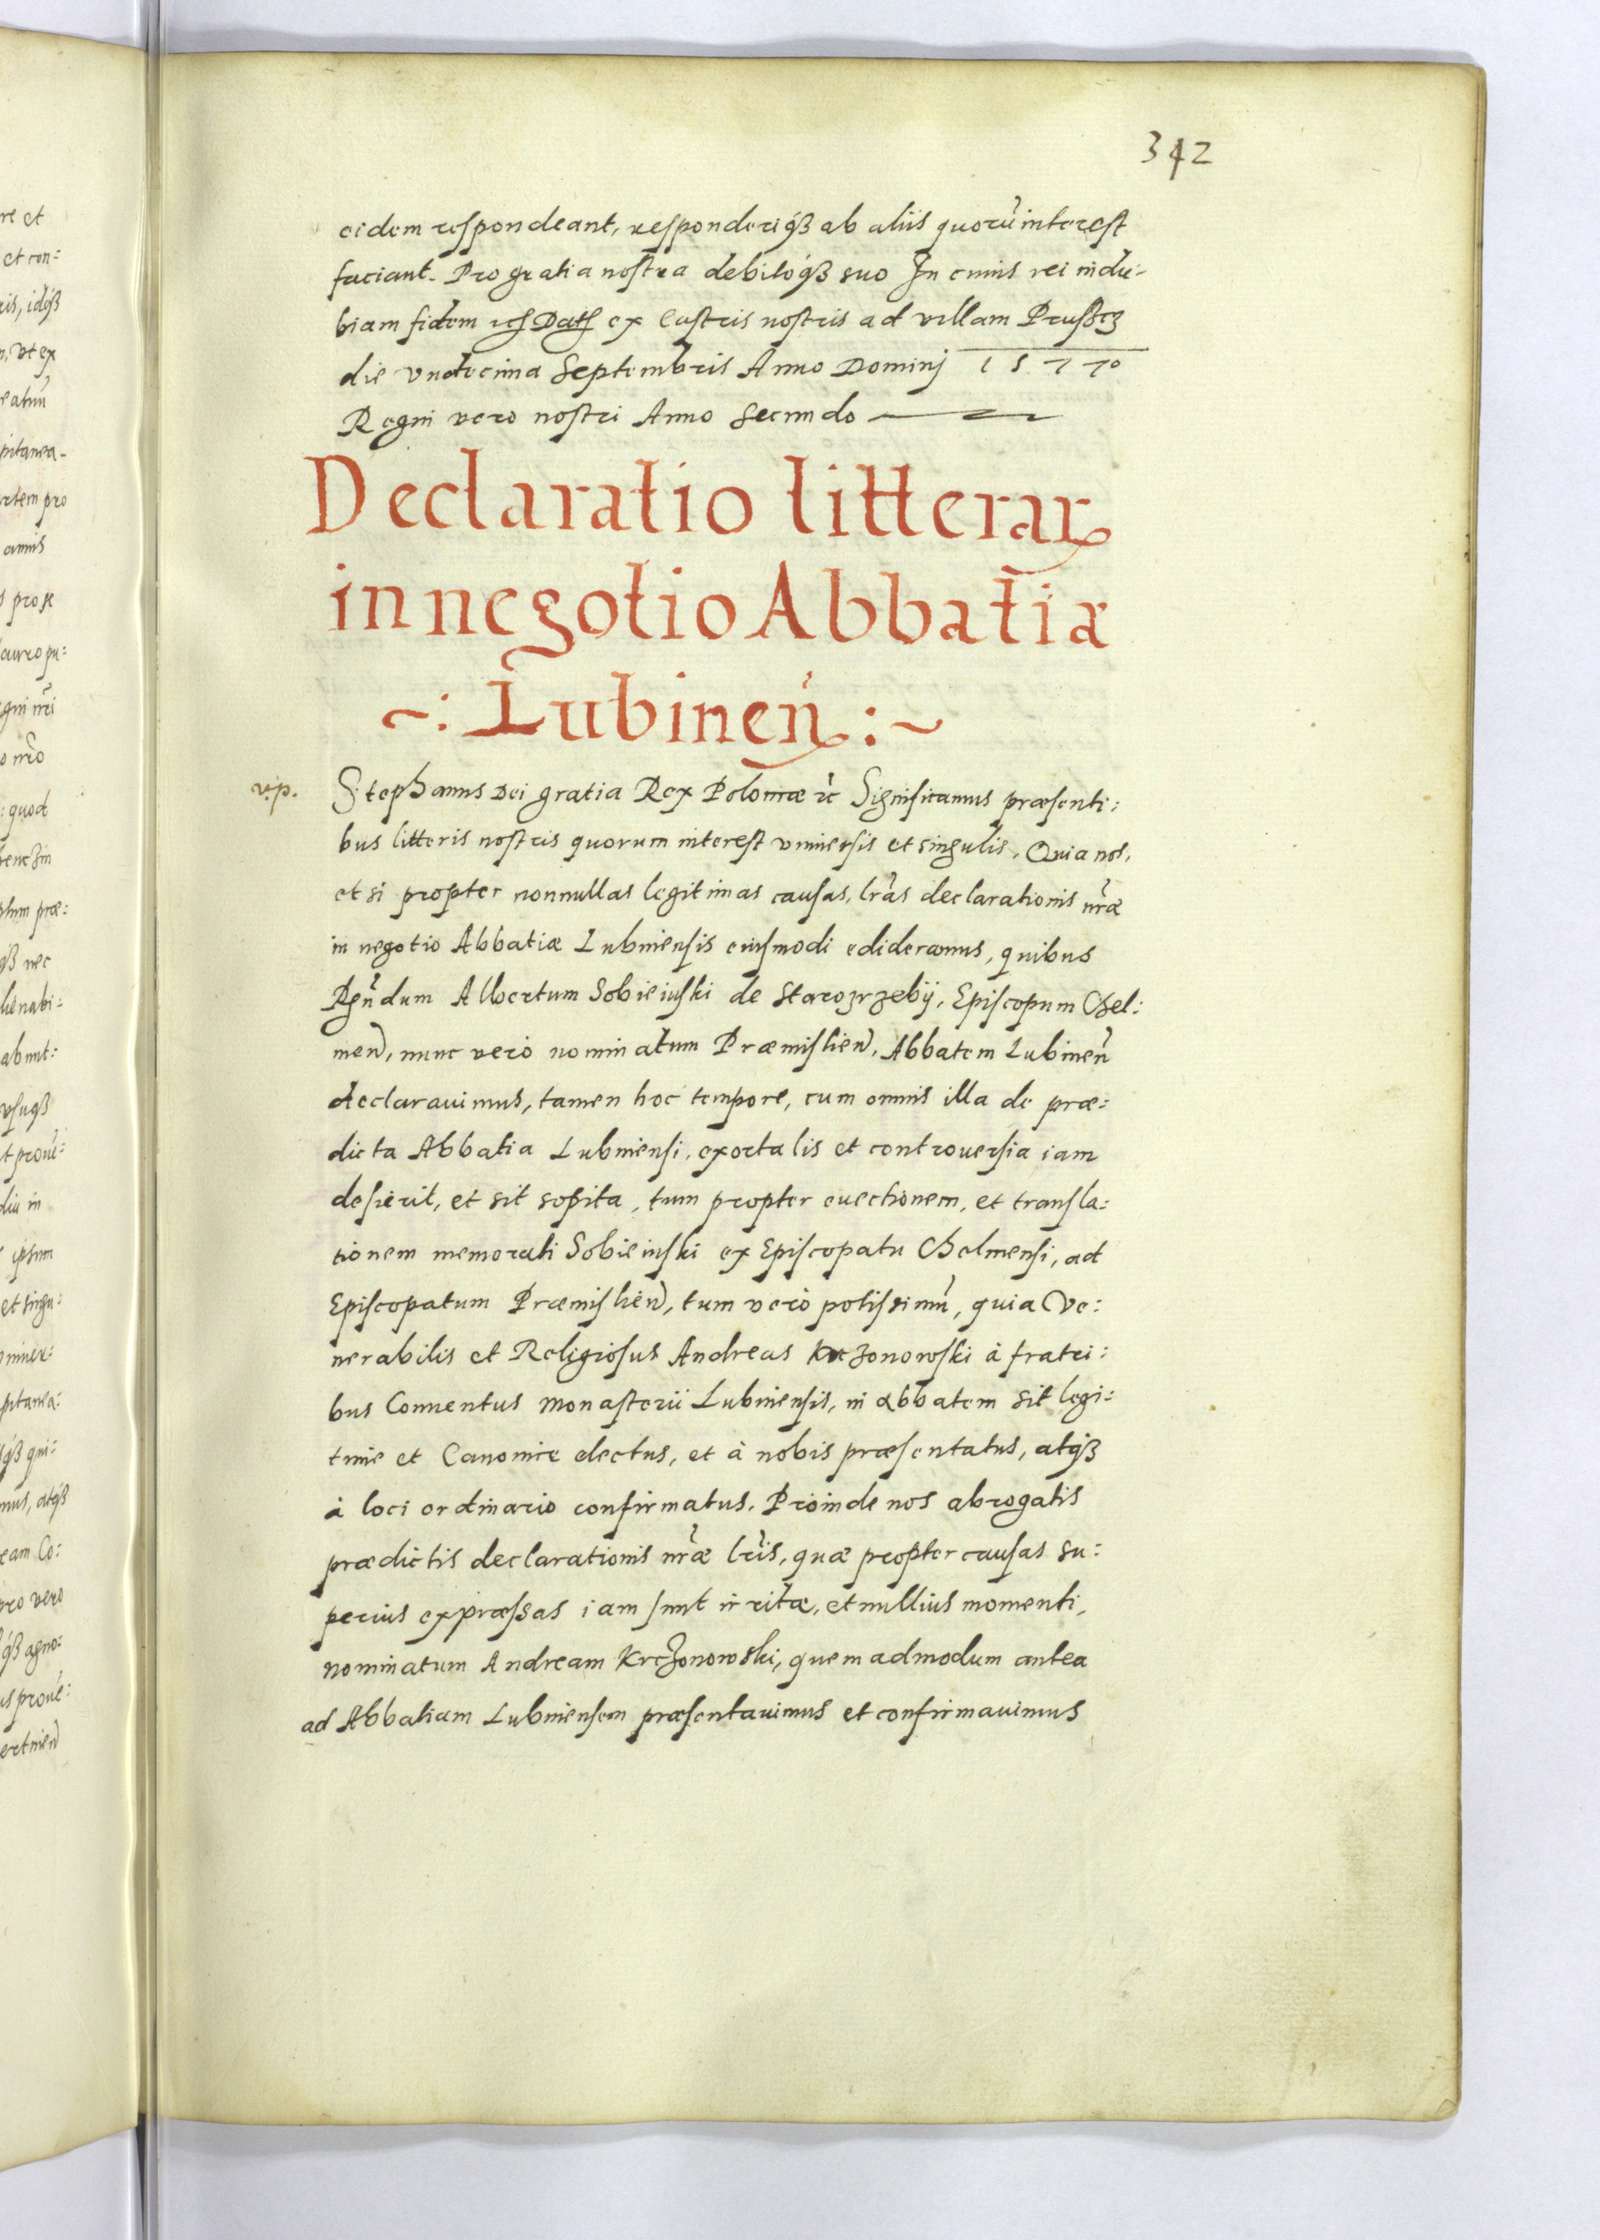 342
eidem respondeant, responderiq́ꝫ ab aliis quorū interest
faciant. Pro gratia nostra debitoq́ꝫ suo In cuius rei indu-
biam fidem etc Datt ex Castris nostris ad villam Prusscz
die vndecima Septembris Anno Dominj 1577o
Regni vero nostri Anno Secundo
Declaratio litterar
in negotio Abbatiæ
~: Lubineñ :~
v.p. Stephanus Dei gratia Rex Poloniæ etc Significamus præsenti:
bus litteris nostris quorum interest vniuersis et singulis, Quia nos,
etsi propter nonnullas legitimas causas, lr̃as declarationis nr̃æ
in negotio Abbatiæ Lubinensis eiusmodi edideramus, quibus
Rñdum Albertum Sobieiuski de Starozrzebij, Episcopum Chel:
meñ, nunc verò nominatum Præmislieñ, Abbatem Lubineñ
declarauimus, tamen hoc tempore, cum omnis illa de præ:
dicta Abbatia Lubinensi, exorta lis et controuersia iam
desierit, et sit sopita, tum propter euectionem, et transla:
tionem memorati Sobieiuski ex Episcopatu Chelmensi, ad
Episcopatum Præmislieñ, tum verò potissimū, quia Ve:
nerabilis et Religiosus Andreas Krczonowski à fratri:
bus Conuentus Monasterii Lubinensis, in abbatem sit legi:
time et Canonice electus, et à nobis præsentatus, atq́ꝫ
à loci ordinario confirmatus. Proinde nos abrogatis
prædictis declarationis nr̃æ lr̃is, quæ propter causas su:
perius expræssas iam sunt irritæ, et nullius momenti,
nominatum Andream Krczonowski, quemadmodum antea
ad Abbatiam Lubinensem præsentauimus et confirmauimus